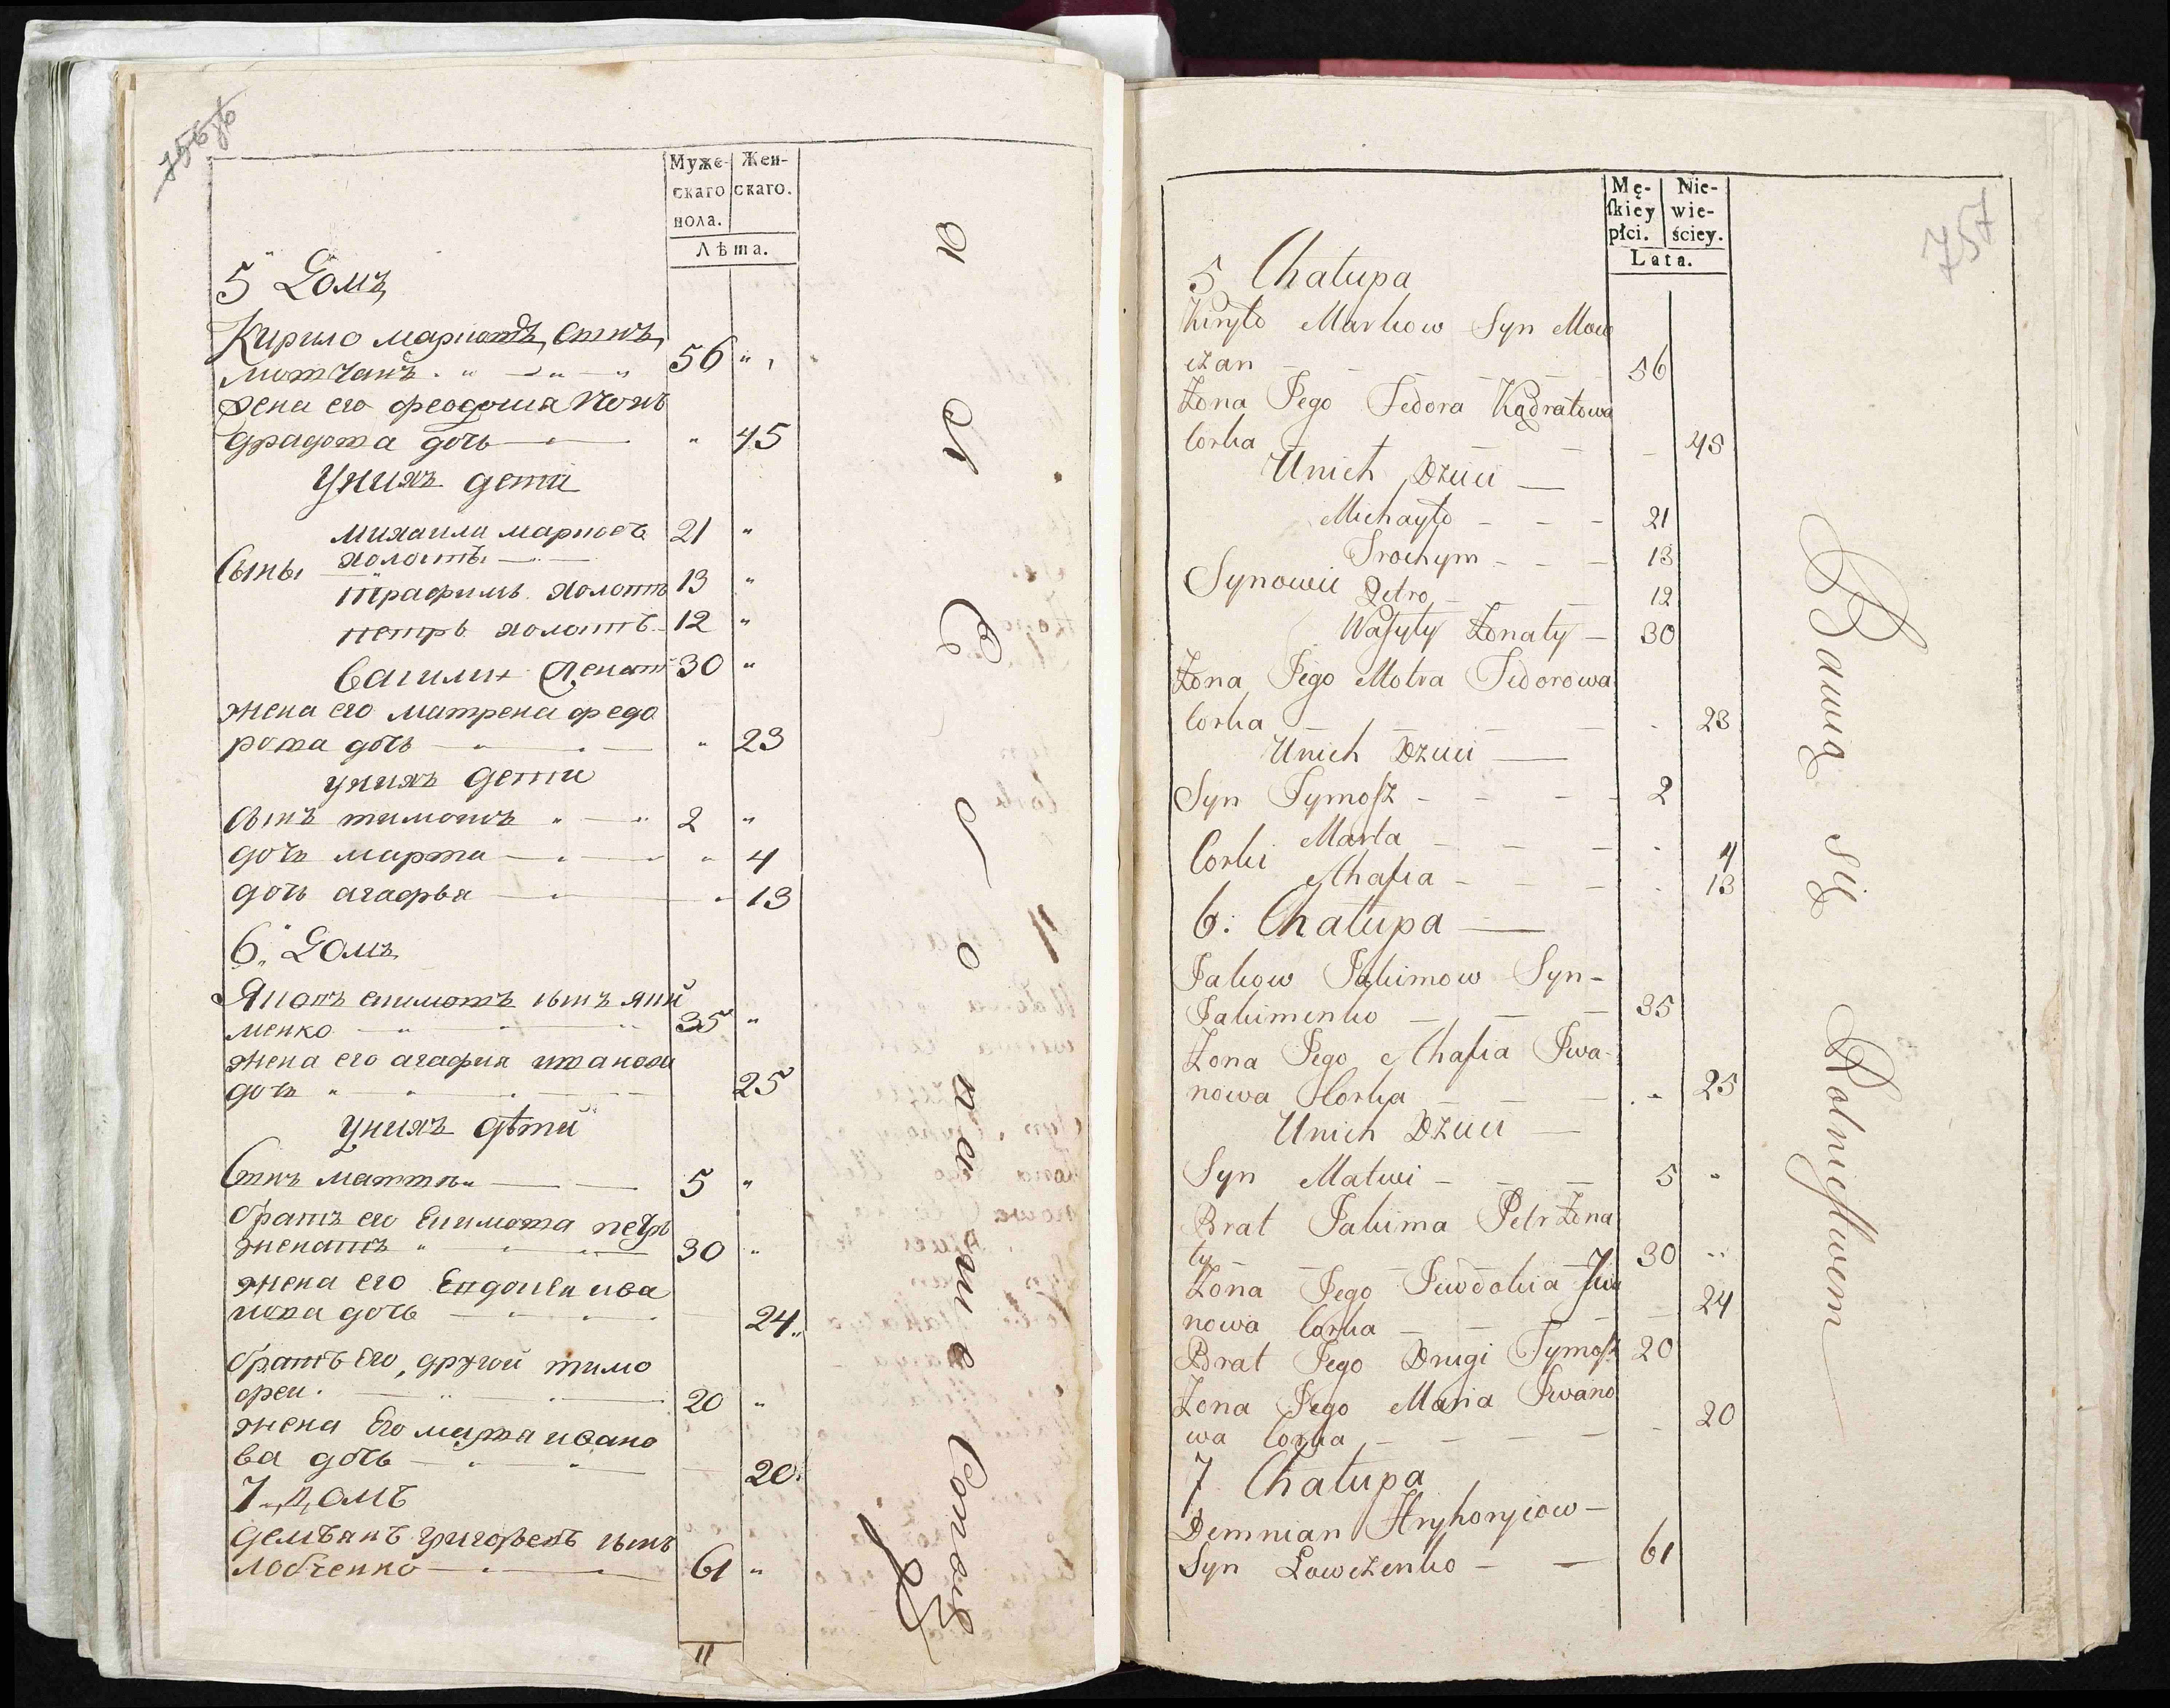 756 об
Муже-
скаго
пола.
Жен-
скаго.
Лѣта.
5 Домъ
Кирило марковъ сынъ
мовчанъ 56 "
Жена его феодосия Кон
дратова дочь " 45
У них дети
михаила марковъ 21 "
Сыны холостъ
трафимъ холостъ 13 "
петръ холостъ 12 "
василии женатъ 30 "
жена его матрена федо
рова дочь " 23
у нихъ дети
сынъ тимошъ 2 "
дочь марта " 4
дочь агафья 13
6. Домъ
Яковъ екимовъ сынъ яки
менко 35 "
жена его агафия иванова
дочь 25
у нихъ дѣти
Сынъ матвѣи 5 "
братъ его Екимова петръ
женатъ 30 "
жена его Евдокия ива
нова дочь 24
братъ его другой тимо
феи 20 "
жена Его марья ивано
ва дочь 20
7 домъ
демьянъ григорьевъ сынъ
лобченко 61 "
11
757
Mę-
ſkiey
płci.
Nie-
wie-
ściey.
Lata.
5 Chałupa
Kiryło Markow Syn Mow
czan 56
Żona Jego Fedora Kądratowa
Corka 45
U nich Dzieci
Michayło 21
Trochym 13
Synowie Petro 12
Waſyly Żonaty 30
Żona Jego Motra Fedorowa
Corka 23
U nich Dzieci
Syn Tymoſz 2
Marta 4
Corki Ahafia 13
6: Chałupa
Jakow Jakimow Syn
Jakimenko 35
Żona Jego Ahafia Iwa
nowa Corka 25
U nich Dzieci
Syn Matwi 5 "
Brat Jakima Petr Żona
ty 30 "
Żona Jego Jewdokia Iwa
nowa Corka 24
Brat Jego Drugi Tymoſz 20
Żona Jego Maria Iwano
wa Corka 20
7 Chałupa
Demnian Hryhoryiow
Syn Łowczenko 61
Bawią się Rolnictwem